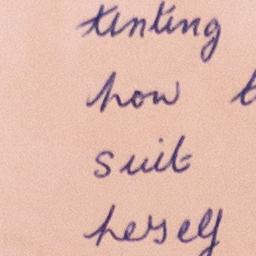 tinting
how t
suit
herself